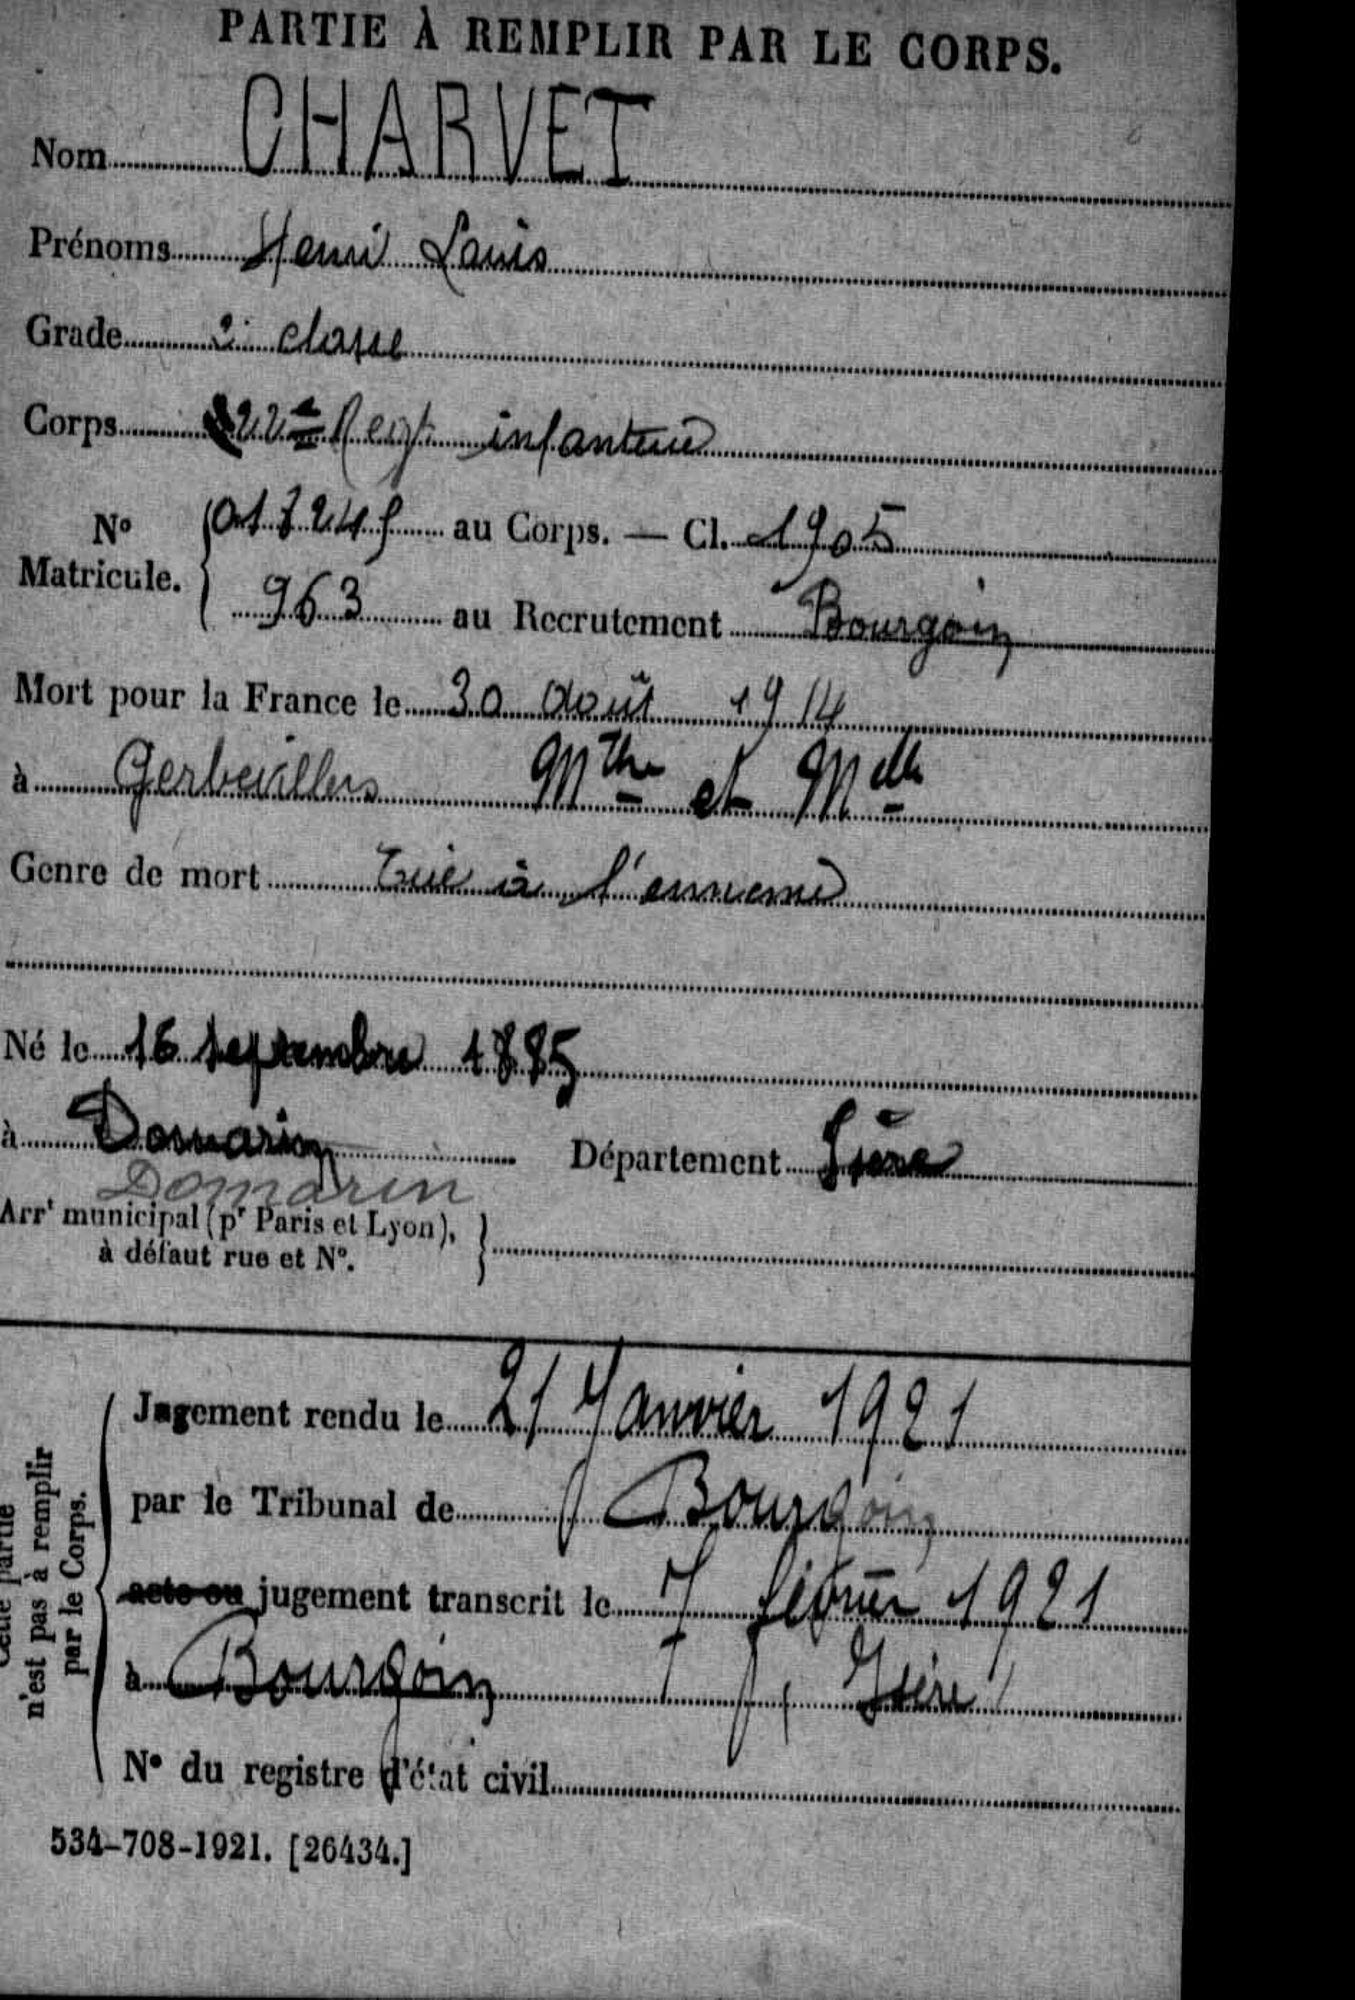 PARTIE À REMPLIR PAR LE CORPS.
Nom CHARVET
Prénoms Henri Louis
Grade 2e classe
Corps 22e Regt infanterie
No Matricule. au Corps. — Cl. 1905
963 au Recrutement Bourgoin
Mort pour la France le 30 août 1914
à Gerbevillers Mthe et Melle
Genre de mort Tué à l'ennemi
Né le 16 septembre 1885
à Domarin Département Isère
Domarin
Arrt municipal (pr Paris et Lyon),
à défaut rue et No.
Cette partie
n'est pas à remplir
par le Corps.
Jugement rendu le 21 Janvier 1921
par le Tribunal de Bourgoin
acte ou jugement transcrit le 7 février 1921
à Bourgoin, Isère
No du registre d'état civil
534-708-1921. [26434.]